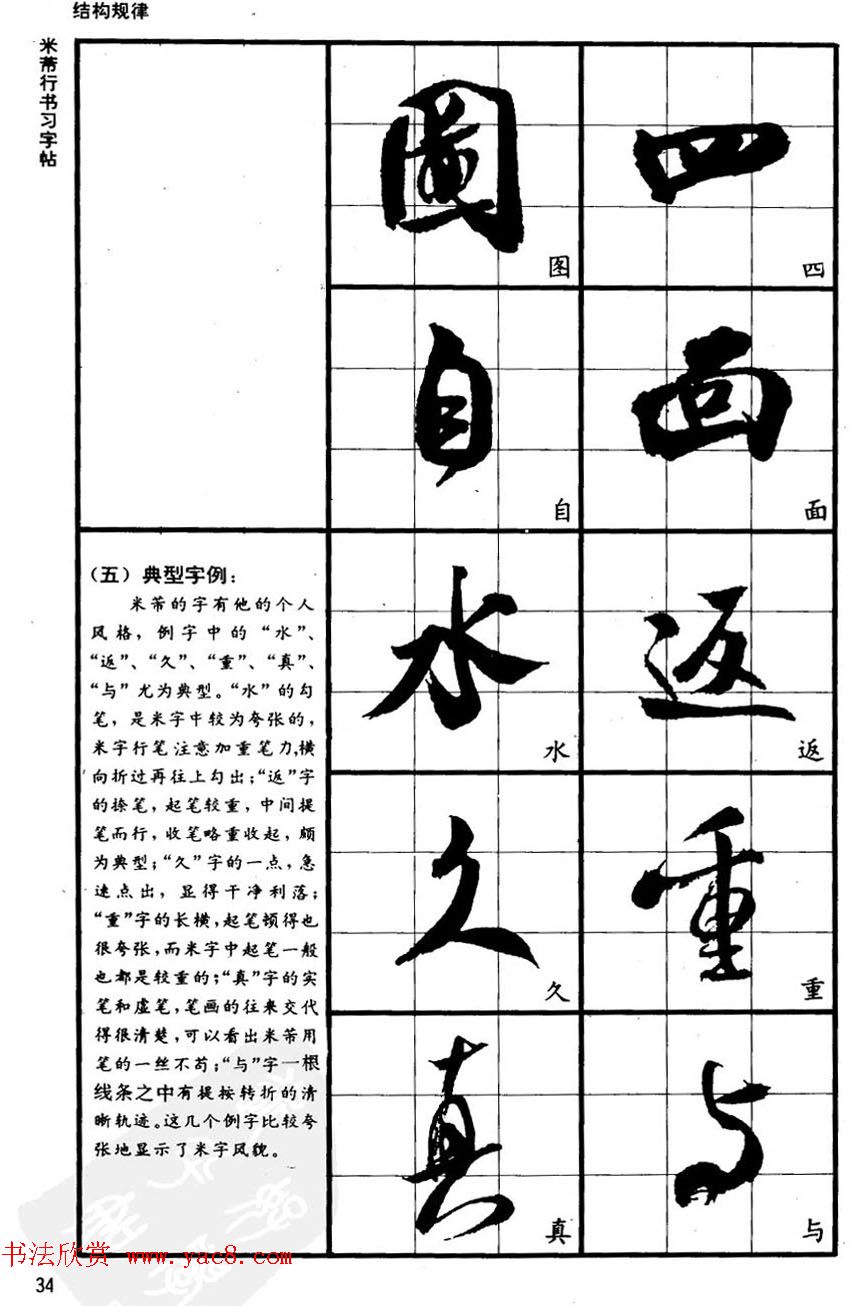 结构规律
米芾行书习字帖
四
四
圖
图
面
面
自
自
返
返
水
水
重
重
久
久
与
与
真
真
（五）典型字例：
米芾的字有他的个人
风格，例字中的“水”、
“返”、“久”、“重”、“真”、
“与”尤为典型。“水”的勾
笔，是米字中较为夸张的，
米字行笔注意加重笔力，横
向折过再往上勾出；“返”字
的捺笔，起笔较重，中间提
笔而行，收笔略重收起，颇
为典型；“久”字的一点，急
速点出，显得干净利落；
“重”字的长横，起笔顿得也
很夸张，而米字中起笔一般
也都是较重的；“真”字的实
笔和虚笔，笔画的往来交代
得很清楚，可以看出米芾用
笔的一丝不苟；“与”字一根
线条之中有提按转折的清
晰轨迹。这几个例字比较夸
张地显示了米字风貌。
书法欣赏 www.yac8.com
34